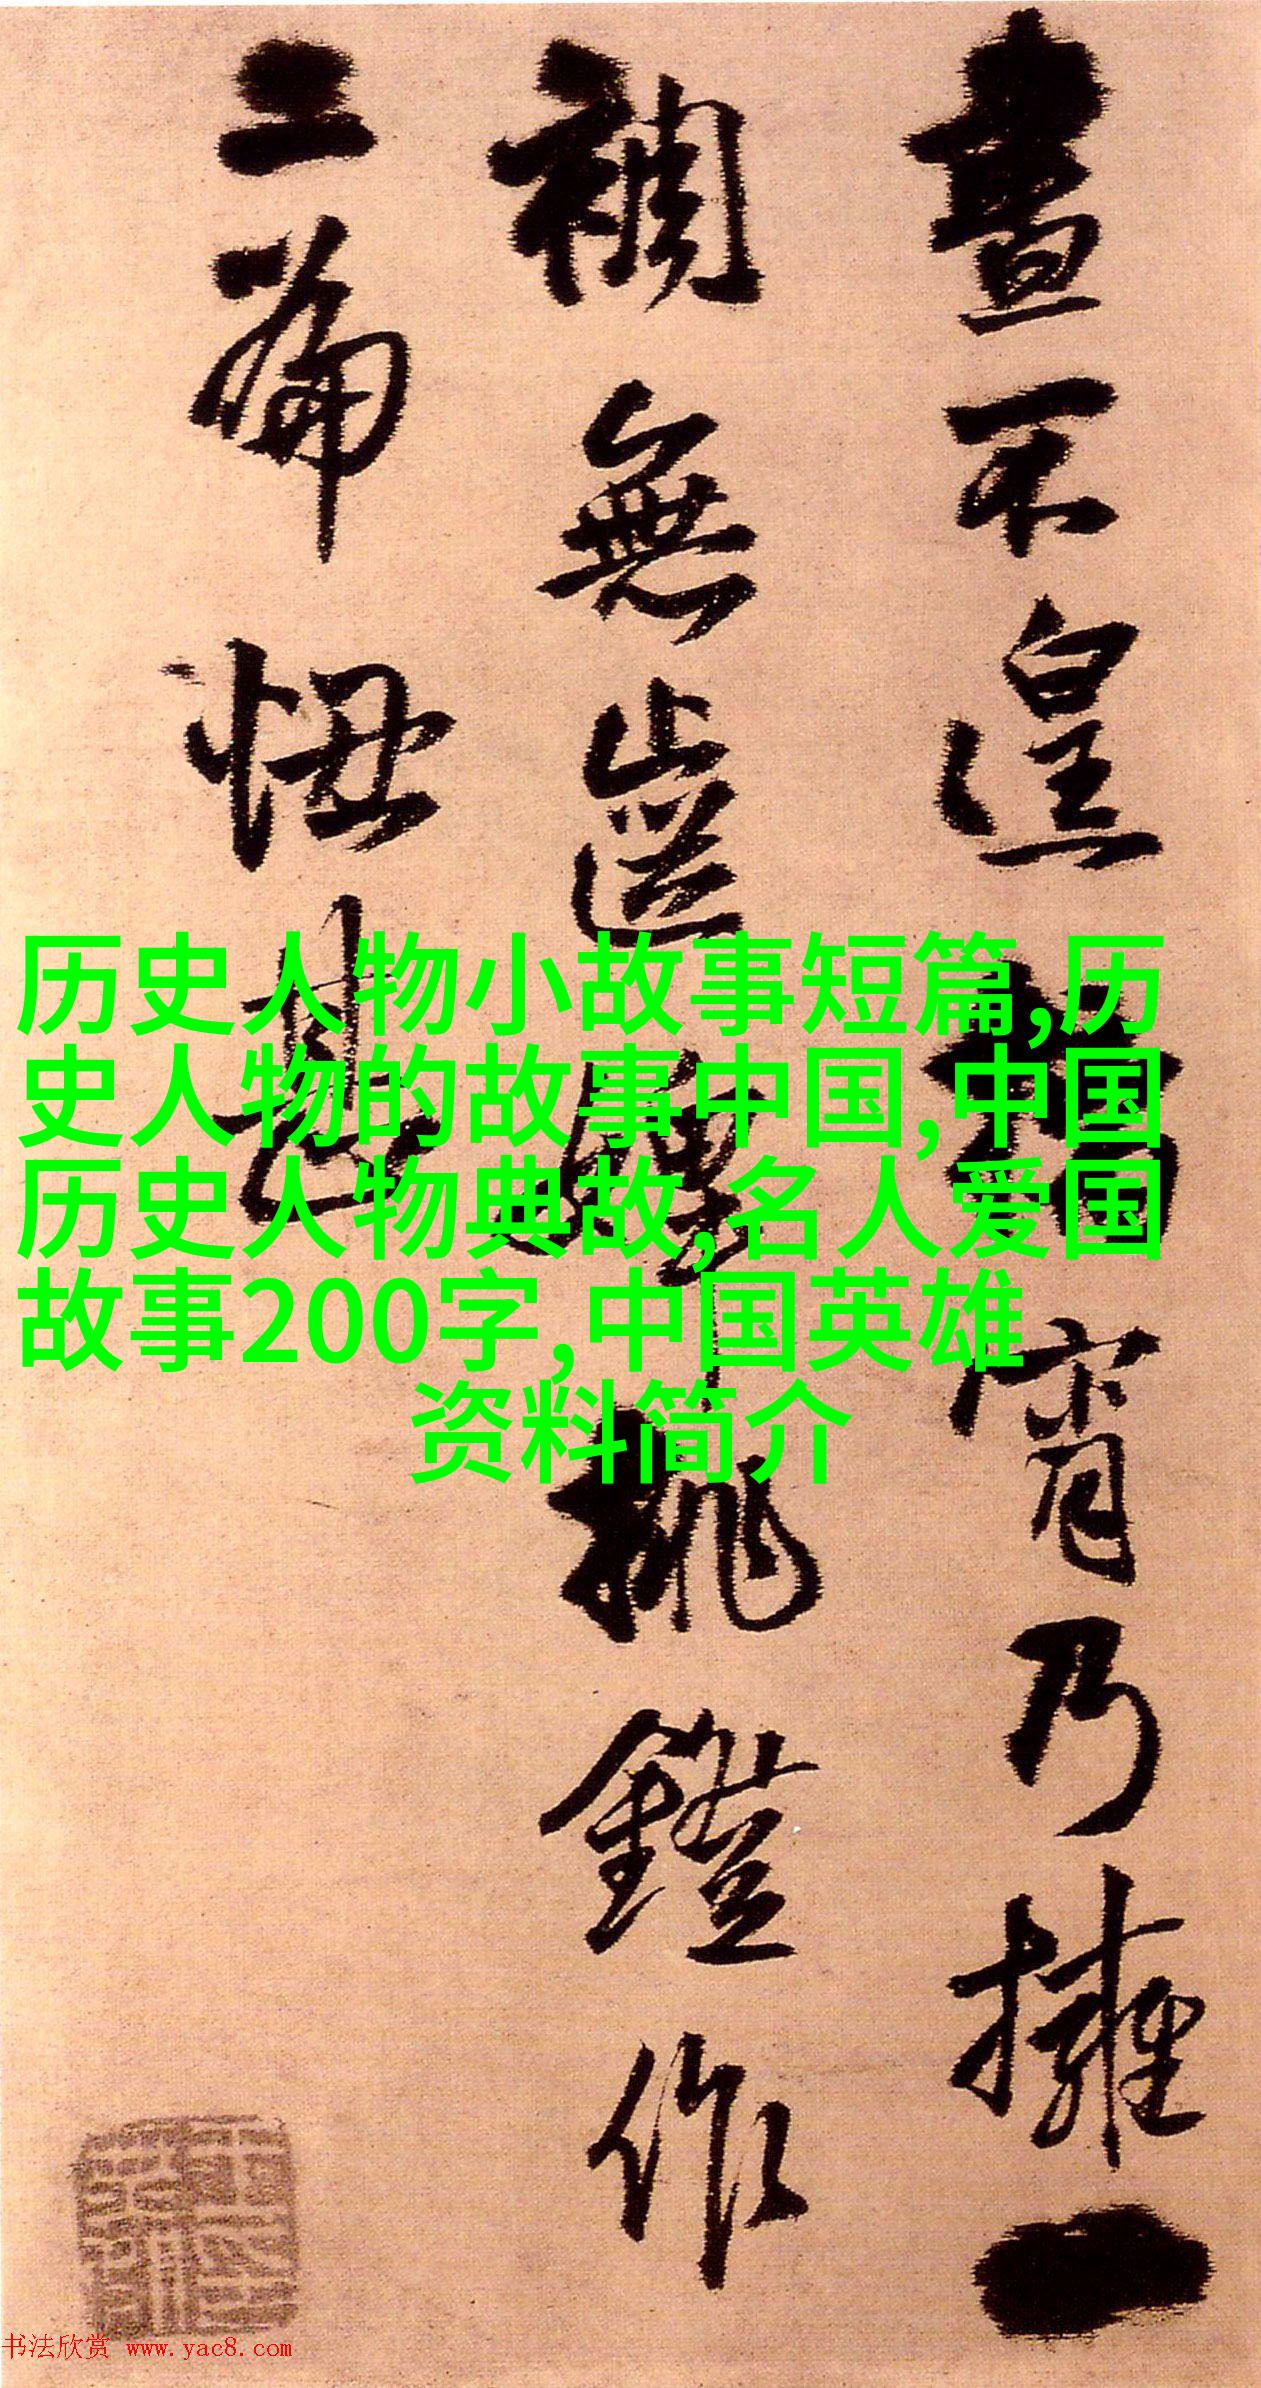 晝不遑宵乃擁一
裯無挑鐙作
二篇甚
历史人物小故事短篇,历
史人物的故事中国,中国
历史人物典故,名人爱国
故事200字,中国英雄
资料简介
书法欣赏 www.yac8.com